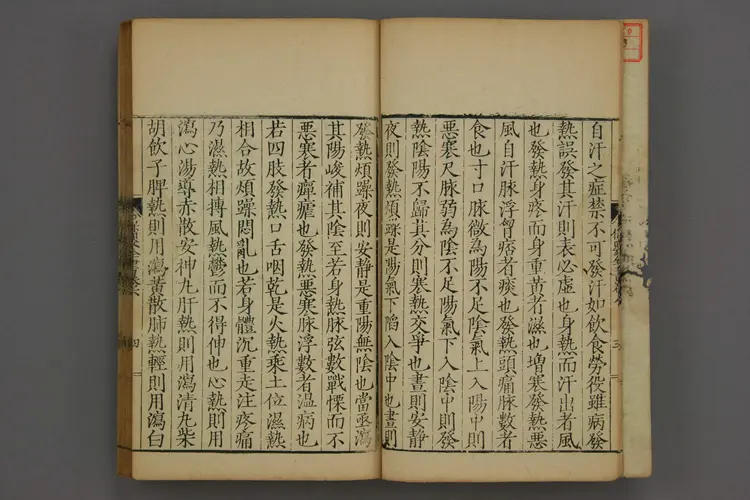 自汗之症禁不可發汗如飲食勞役雖病發
熱誤發其汗則表必虛也身熱而汗出者風
也發熱身疼而身重黃者濕也增寒發熱惡
風自汗脉浮胷痞者痰也發熱頭痛脉數者
食也寸口脉微為陽不足陰氣上入陽中則
惡寒尺脉弱為陰不足陽氣下入陰中則發
熱陰陽不歸其分則寒熱交爭也晝則安静
夜則發熱煩躁是陽氣下陷入陰中也晝則
發熱煩躁夜則安静是重陽無陰也當亟瀉
其陽峻補其陰至若身熱脉弦數戰慄而不
惡寒者癉瘧也發熱惡寒脉浮數者温病也
若四肢發熱口舌咽乾是火熱乘土位濕熱
相合故煩躁悶亂也若身體沉重走注疼痛
乃濕熱相搏風熱鬱而不得伸也心熱則用
瀉心湯導赤散安神丸肝熱則用瀉清丸柴
胡飲子脾熱則用瀉黄散肺熱輕則用瀉白
三
四